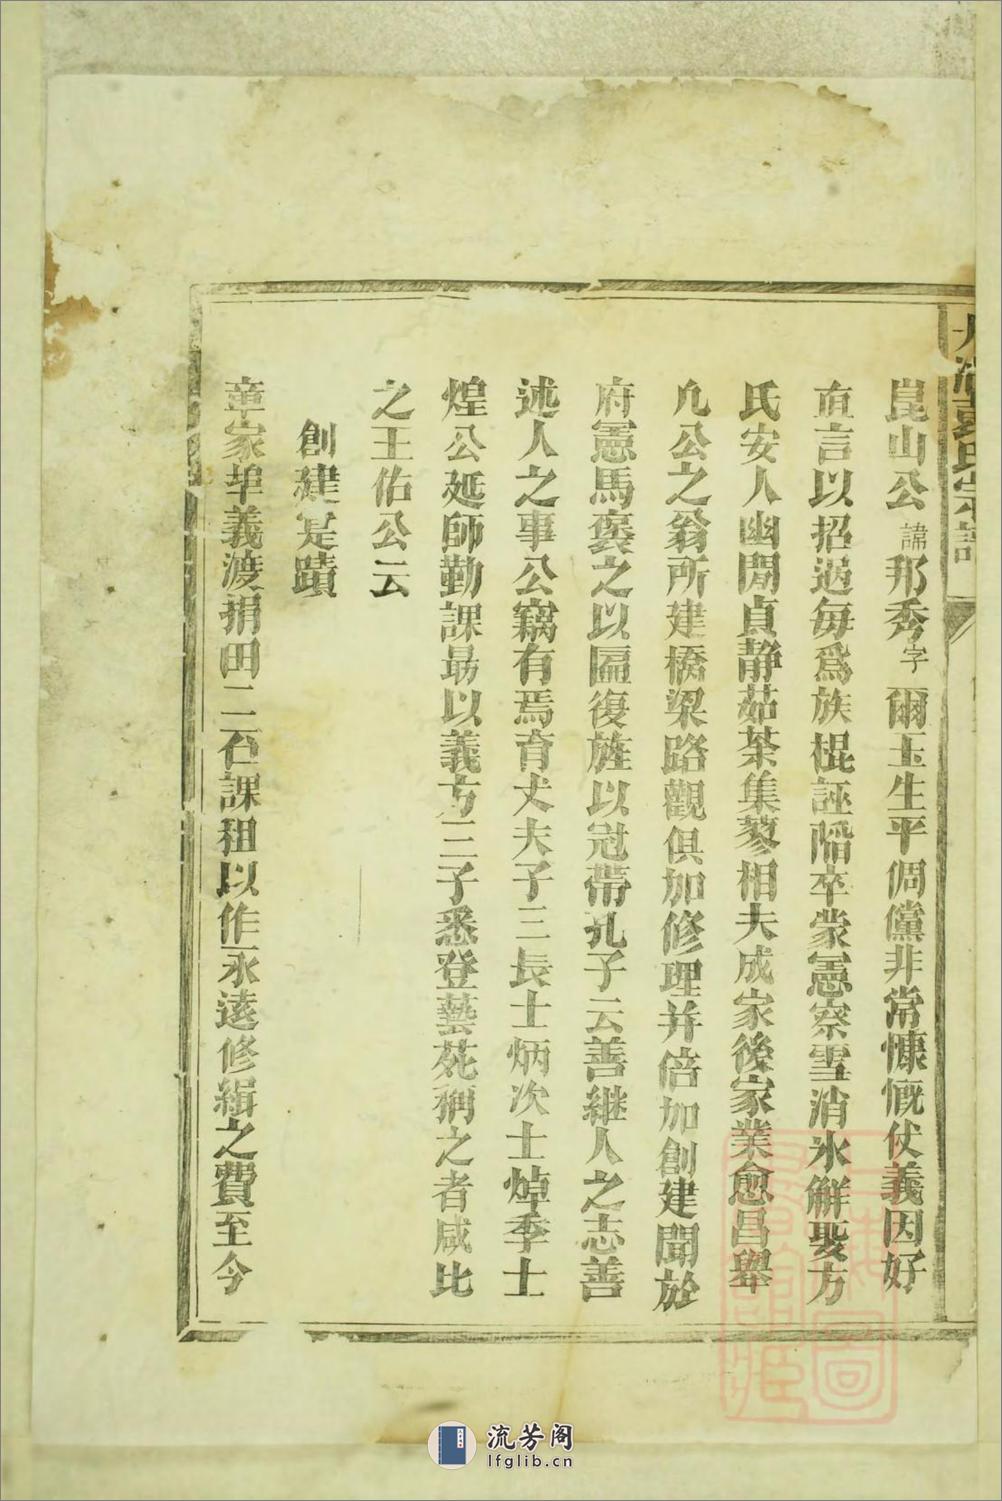 崑山公諱邦秀字爾玉生平倜儻非常慷慨仗義因好
直言以招過每爲族棍誣陷卒蒙憲察雪消氷觧娶方
氏安人幽閒貞静茹荼集蓼相夫成家後家業愈昌舉
凢公之翁所建橋梁路觀俱加修理并倍加創建聞於
府憲馬褒之以匾復旌以冠帶孔子云善継人之志善
述人之事公竊有焉育丈夫子三長士炳次士焯季士
煌公延師勤課朂以義方三子悉登藝苑稱之者咸比
之王佑公云
創建寔蹟
章家埠義渡捐田二石課租以作永遠修緝之費至今
氏宗譜
流芳阁
lfglib.cn